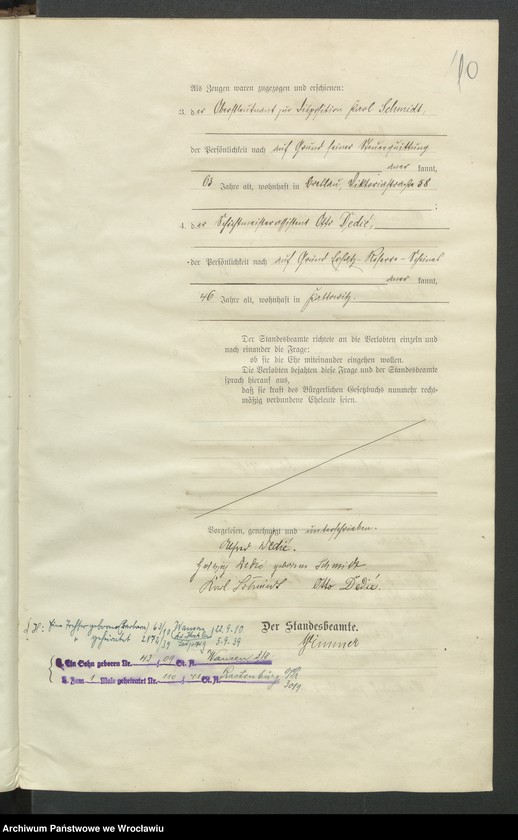 10
Als Zeugen waren zugezogen und erschienen:
3. der Oberstleutnant zur Disposition Karl Schmidt,
der Persönlichkeit nach auf Grund seiner Steuerquittung
aner kannt,
63 Jahre alt, wohnhaft in Breslau, Viktoriastraße 58
;
4. der Schichtmeisterassistent Otto Dedié,
der Persönlichkeit nach auf Grund Ersatz-Reserve-Scheines
aner kannt,
46 Jahre alt, wohnhaft in Kattowitz.
Der Standesbeamte richtete an die Verlobten einzeln und
nach einander die Frage:
ob sie die Ehe miteinander eingehen wollen.
Die Verlobten bejahten diese Frage und der Standesbeamte
sprach hierauf aus,
daß sie kraft des Bürgerlichen Gesetzbuchs nunmehr recht-
mäßig verbundene Eheleute seien.
Vorgelesen, genehmigt und unterschrieben.
Alfred Dedié.
Dedié geborene Schmidt
Karl Schmidt Otto Dedié.
Der Standesbeamte.
Eine Tochter geboren (Barbara) Wansen 22.9.10
" geheiratet 5.9.39
Ein Sohn geboren Nr. 43 09 St. A. Wansen
Zum 1 Male geheiratet Nr. 110 41 St. A. Rastenburg
Archiwum Państwowe we Wrocławiu